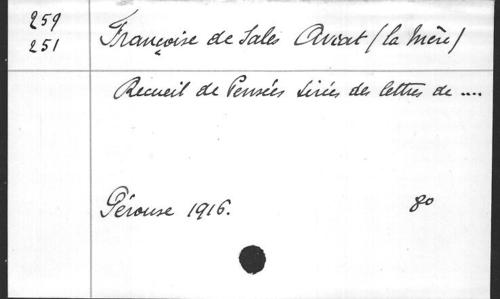 259
251
Françoise de Sales Aviat (la Mère)
Recueil de Pensées tirées des lettres de ....
Pérouse 1916. 8o